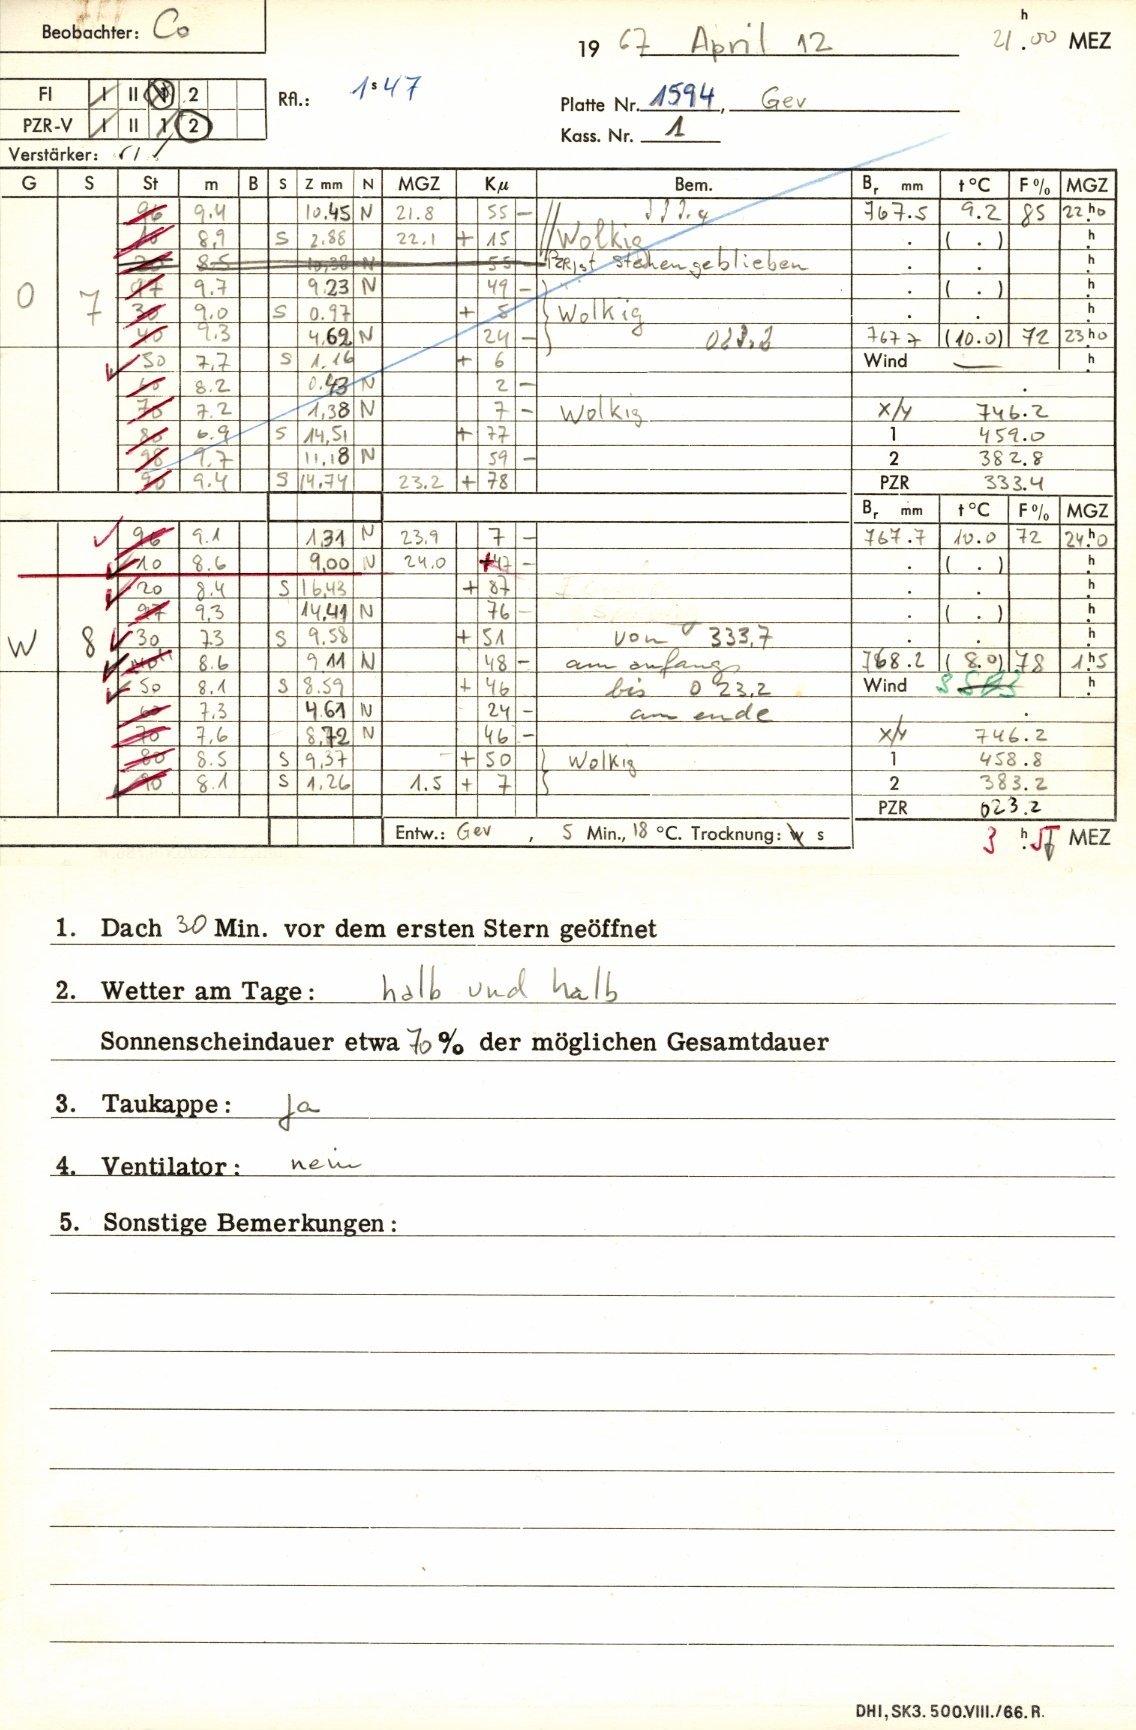 Beobachter: Co
h
19 67 April 12 21.00 MEZ
FI I II 1 2
PZR-V I II 1 2
Rfl.: 1s47
Platte Nr. 1594, Gev
Kass. Nr. 1
Verstärker:
G S St m B S Z mm N MGZ Kμ Bem. Br mm t °C F % MGZ
96 9.4 10.45 N 21.8 55 - 333.4 767.5 9.2 85 22h0
10 8,9 S 2.88 22.1 + 15 Wolkig . ( . ) h
20 8.5 10,38 N 55 PZR ist stehengeblieben . . h
97 9.7 9.23 N 49 - . ( . ) h
O 7 30 9.0 S 0.97 + 5 Wolkig . . h
40 9.3 4,62 N 24 - 767 7 (10.0) 72 23h0
50 7,7 S 1.16 + 6 Wind — h
60 8.2 0.43 N 2 - .
70 7.2 1,38 N 7 - Wolkig X/Y 746.2
80 6.9 S 14,51 + 77 1 459.0
98 9,7 11,18 N 59 - 2 382.8
90 9.4 S 14,74 23.2 + 78 PZR 333.4
Br mm t °C F % MGZ
96 9.1 1,31 N 23.9 7 - 767.7 10.0 72 24h0
10 8.6 9,00 N 24.0 47 - . ( . ) h
20 8.4 S 16,43 + 87 . . h
97 9,3 14,41 N 76 - . ( . ) h
W 8 30 7.3 S 9.58 + 51 von 333,7 . . h
40 8.6 9 11 N 48 - am anfang 768.2 ( 8.0) 78 1h5
50 8.1 S 8.59 + 46 bis 023,2 Wind h
60 7,3 4.61 N 24 - am ende .
70 7,6 8,72 N 46 - X/Y 746.2
80 8.5 S 9,37 + 50 Wolkig 1 458.8
90 8.1 S 1.26 1.5 + 7 2 383.2
PZR 023.2
Entw.: Gev , 5 Min., 18 °C. Trocknung: w s
3 h 57 MEZ
1. Dach 30 Min. vor dem ersten Stern geöffnet
2. Wetter am Tage: halb und halb
Sonnenscheindauer etwa 70 % der möglichen Gesamtdauer
3. Taukappe: Ja
4. Ventilator: nein
5. Sonstige Bemerkungen:
DHI, SK3. 500.VIII./66. R.